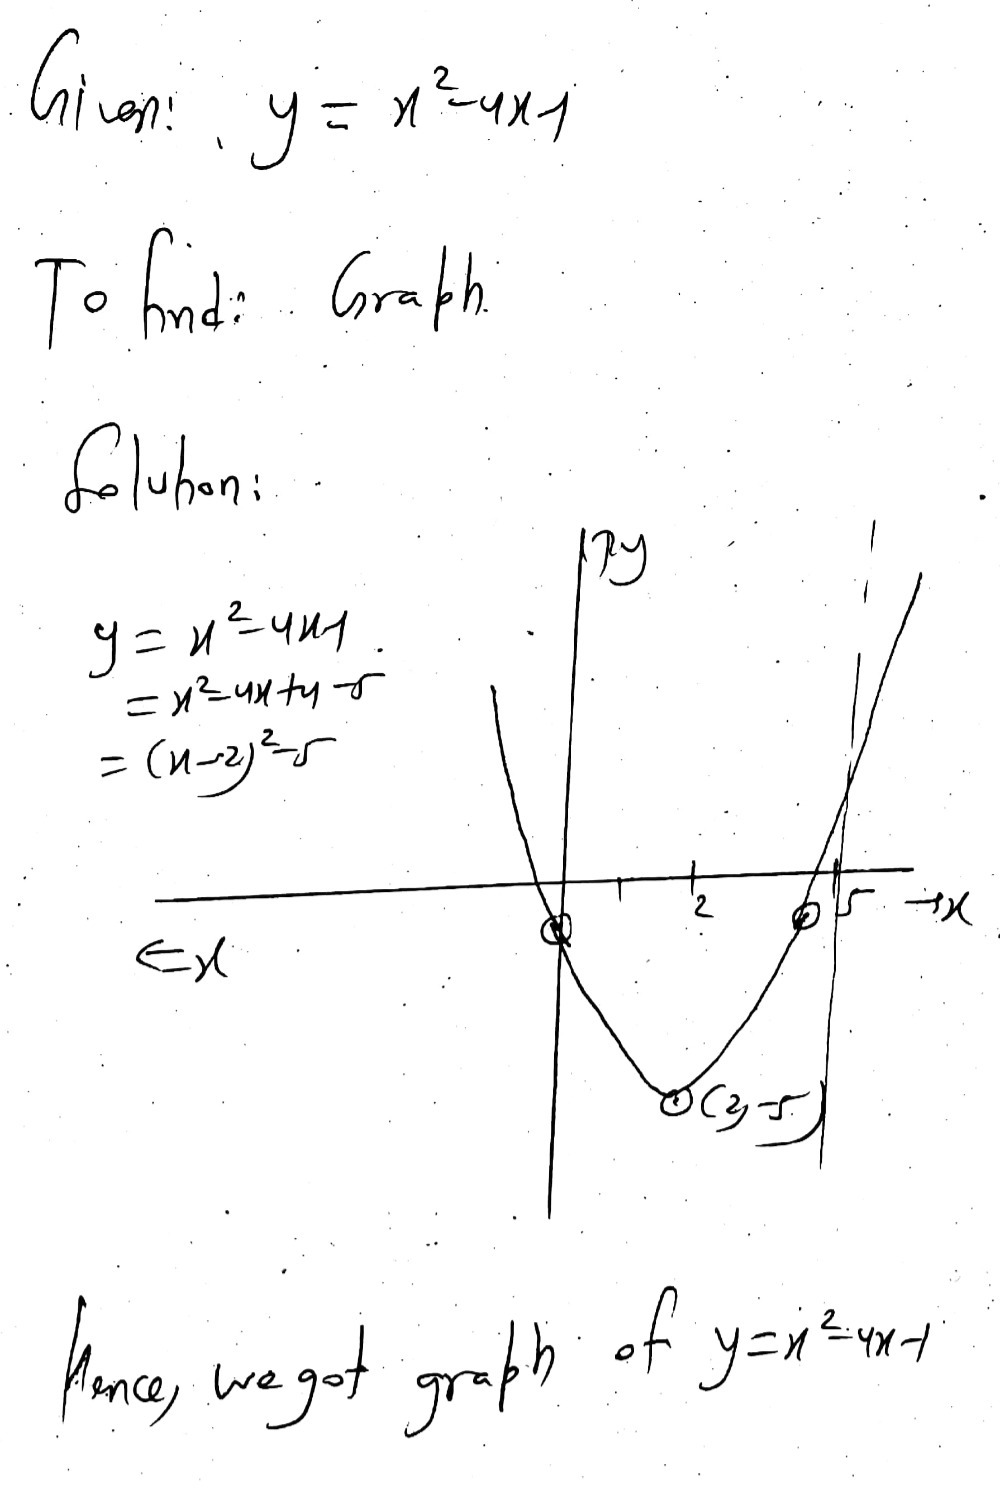 Given: y = x²-4x-1
To find: Graph
Solution:
↑y
y = x²-4x-1
= x²-4x+4-5
= (x-2)²-5
2
5
→x
←x
(2,-5)
Hence, we got graph of y=x²-4x-1